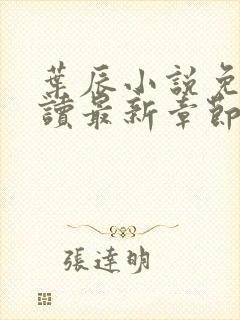 葉辰小説免
讀最新章節
張達明